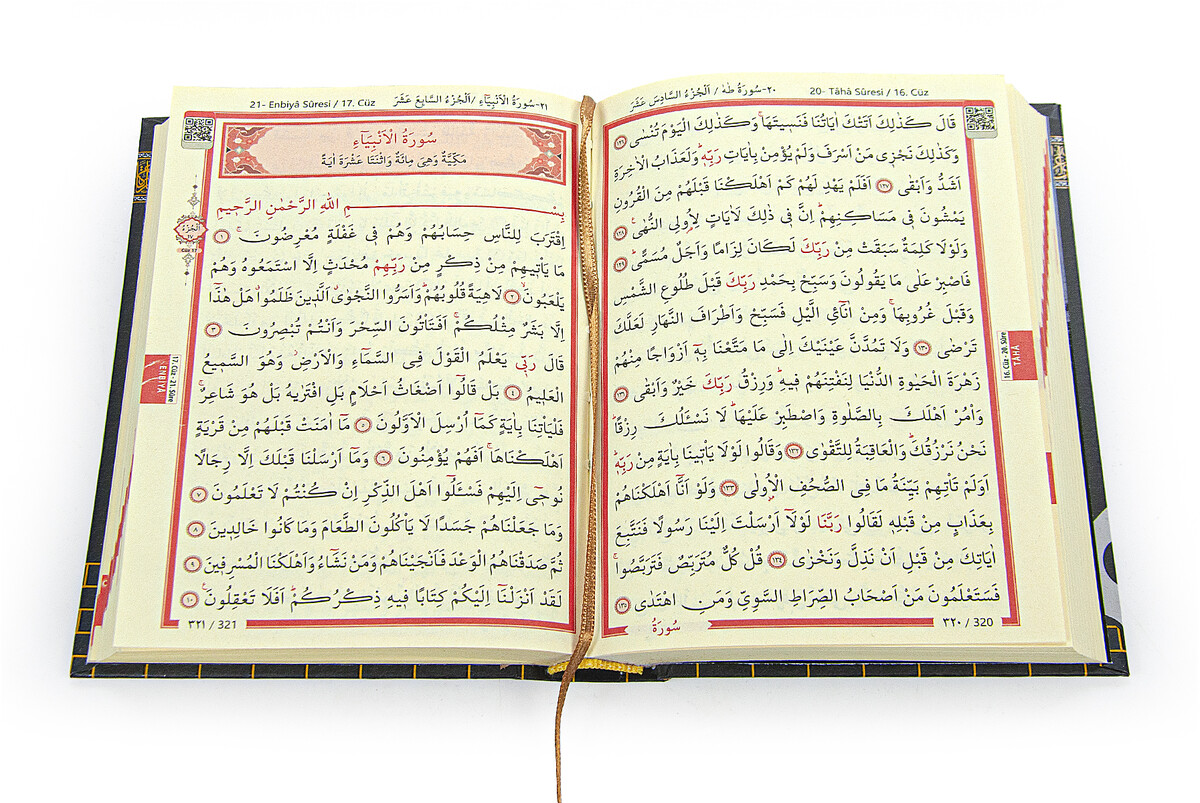 ٢٠-سُورَةُ طٰهٰ / اَلْجُزْءُ السَّادِسَ عَشَرَ
20- Tâhâ Sûresi / 16. Cüz
قَالَ كَذٰلِكَ اَتَتْكَ اٰيَاتُنَا فَنَس۪يتَهَاۚ وَكَذٰلِكَ الْيَوْمَ تُنْسٰى ﴿١٢٦﴾
وَكَذٰلِكَ نَجْز۪ي مَنْ اَسْرَفَ وَلَمْ يُؤْمِنْ بِاٰيَاتِ رَبِّه۪ۜ وَلَعَذَابُ الْاٰخِرَةِ
اَشَدُّ وَاَبْقٰى ﴿١٢٧﴾ اَفَلَمْ يَهْدِ لَهُمْ كَمْ اَهْلَكْنَا قَبْلَهُمْ مِنَ الْقُرُونِ
يَمْشُونَ ف۪ي مَسَاكِنِهِمْۜ اِنَّ ف۪ي ذٰلِكَ لَاٰيَاتٍ لِاُو۬لِي النُّهٰى۟ ﴿١٢٨﴾
وَلَوْلَا كَلِمَةٌ سَبَقَتْ مِنْ رَبِّكَ لَكَانَ لِزَامًا وَاَجَلٌ مُسَمًّىۜ ﴿١٢٩﴾
فَاصْبِرْ عَلٰى مَا يَقُولُونَ وَسَبِّحْ بِحَمْدِ رَبِّكَ قَبْلَ طُلُوعِ الشَّمْسِ
وَقَبْلَ غُرُوبِهَاۚ وَمِنْ اٰنَآئِ الَّيْلِ فَسَبِّحْ وَاَطْرَافَ النَّهَارِ لَعَلَّكَ
تَرْضٰى ﴿١٣٠﴾ وَلَا تَمُدَّنَّ عَيْنَيْكَ اِلٰى مَا مَتَّعْنَا بِه۪ٓ اَزْوَاجًا مِنْهُمْ
زَهْرَةَ الْحَيٰوةِ الدُّنْيَا لِنَفْتِنَهُمْ ف۪يهِۜ وَرِزْقُ رَبِّكَ خَيْرٌ وَاَبْقٰى ﴿١٣١﴾
وَأْمُرْ اَهْلَكَ بِالصَّلٰوةِ وَاصْطَبِرْ عَلَيْهَاۜ لَا نَسْـَٔلُكَ رِزْقًاۜ
نَحْنُ نَرْزُقُكَۜ وَالْعَاقِبَةُ لِلتَّقْوٰى ﴿١٣٢﴾ وَقَالُوا لَوْلَا يَأْت۪ينَا بِاٰيَةٍ مِنْ رَبِّه۪ۜ
اَوَلَمْ تَأْتِهِمْ بَيِّنَةُ مَا فِي الصُّحُفِ الْاُو۫لٰى ﴿١٣٣﴾ وَلَوْ اَنَّٓا اَهْلَكْنَاهُمْ
بِعَذَابٍ مِنْ قَبْلِه۪ لَقَالُوا رَبَّنَا لَوْلَٓا اَرْسَلْتَ اِلَيْنَا رَسُولًا فَنَتَّبِعَ
اٰيَاتِكَ مِنْ قَبْلِ اَنْ نَذِلَّ وَنَخْزٰى ﴿١٣٤﴾ قُلْ كُلٌّ مُتَرَبِّصٌ فَتَرَبَّصُواۚ
فَسَتَعْلَمُونَ مَنْ اَصْحَابُ الصِّرَاطِ السَّوِيِّ وَمَنِ اهْتَدٰى ﴿١٣٥﴾
سُورَةُ
٣٢٠ / 320
16. Cüz - 20. Sûre
TÂHÂ
٢١-سُورَةُ الْاَنْبِيَٓاءِ / اَلْجُزْءُ السَّابِعَ عَشَرَ
21- Enbiyâ Sûresi / 17. Cüz
سُورَةُ الْاَنْبِيَٓاءِ
مَكِّيَّةٌ وَهِيَ مِائَةٌ وَاثْنَتَا عَشْرَةَ اٰيَةً
بِسْمِ اللّٰهِ الرَّحْمٰنِ الرَّح۪يمِ
اِقْتَرَبَ لِلنَّاسِ حِسَابُهُمْ وَهُمْ ف۪ي غَفْلَةٍ مُعْرِضُونَۚ ﴿١﴾
مَا يَأْت۪يهِمْ مِنْ ذِكْرٍ مِنْ رَبِّهِمْ مُحْدَثٍ اِلَّا اسْتَمَعُوهُ وَهُمْ
يَلْعَبُونَۙ ﴿٢﴾ لَاهِيَةً قُلُوبُهُمْۜ وَاَسَرُّوا النَّجْوٰىۗ اَلَّذ۪ينَ ظَلَمُواۗ هَلْ هٰذَٓا
اِلَّا بَشَرٌ مِثْلُكُمْۚ اَفَتَأْتُونَ السِّحْرَ وَاَنْتُمْ تُبْصِرُونَ ﴿٣﴾
قَالَ رَبّ۪ي يَعْلَمُ الْقَوْلَ فِي السَّمَٓاءِ وَالْاَرْضِۘ وَهُوَ السَّم۪يعُ
الْعَل۪يمُ ﴿٤﴾ بَلْ قَالُٓوا اَضْغَاثُ اَحْلَامٍ بَلِ افْتَرٰيهُ بَلْ هُوَ شَاعِرٌۚ
فَلْيَأْتِنَا بِاٰيَةٍ كَمَٓا اُرْسِلَ الْاَوَّلُونَ ﴿٥﴾ مَٓا اٰمَنَتْ قَبْلَهُمْ مِنْ قَرْيَةٍ
اَهْلَكْنَاهَاۚ اَفَهُمْ يُؤْمِنُونَ ﴿٦﴾ وَمَٓا اَرْسَلْنَا قَبْلَكَ اِلَّا رِجَالًا
نُوح۪ٓي اِلَيْهِمْ فَسْـَٔلُٓوا اَهْلَ الذِّكْرِ اِنْ كُنْتُمْ لَا تَعْلَمُونَ ﴿٧﴾
وَمَا جَعَلْنَاهُمْ جَسَدًا لَا يَأْكُلُونَ الطَّعَامَ وَمَا كَانُوا خَالِد۪ينَ ﴿٨﴾
ثُمَّ صَدَقْنَاهُمُ الْوَعْدَ فَاَنْجَيْنَاهُمْ وَمَنْ نَشَٓاءُ وَاَهْلَكْنَا الْمُسْرِف۪ينَ ﴿٩﴾
لَقَدْ اَنْزَلْنَٓا اِلَيْكُمْ كِتَابًا ف۪يهِ ذِكْرُكُمْۜ اَفَلَا تَعْقِلُونَ۟ ﴿١٠﴾
٣٢١ / 321
اَلْجُزْءُ
١٧
Cüz 17
17. Cüz - 21. Sûre
ENBİYÂ